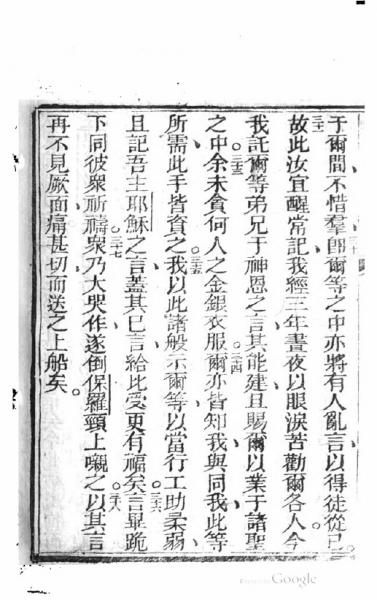 于爾間不惜羣卽爾等之中亦將有人亂言以得徒從己
故此汝宜醒常記我經三年晝夜以眼淚苦勸爾各人今
我託爾等弟兄于神恩之言其能建且賜爾以業于諸聖
之中余未貪何人之金銀衣服爾亦皆知我與同我此等
所需此手皆資之我以此諸般示爾等以當行工助柔弱
且記吾主耶穌之言蓋其已言給比受更有福矣言畢跪
下同彼衆祈禱衆乃大哭作遂倒保羅頸上嚫之以其言
再不見厥面痛甚切而送之上船矣
三十
三一
三二
三三
三四
三五
三六
三七
三八
Google